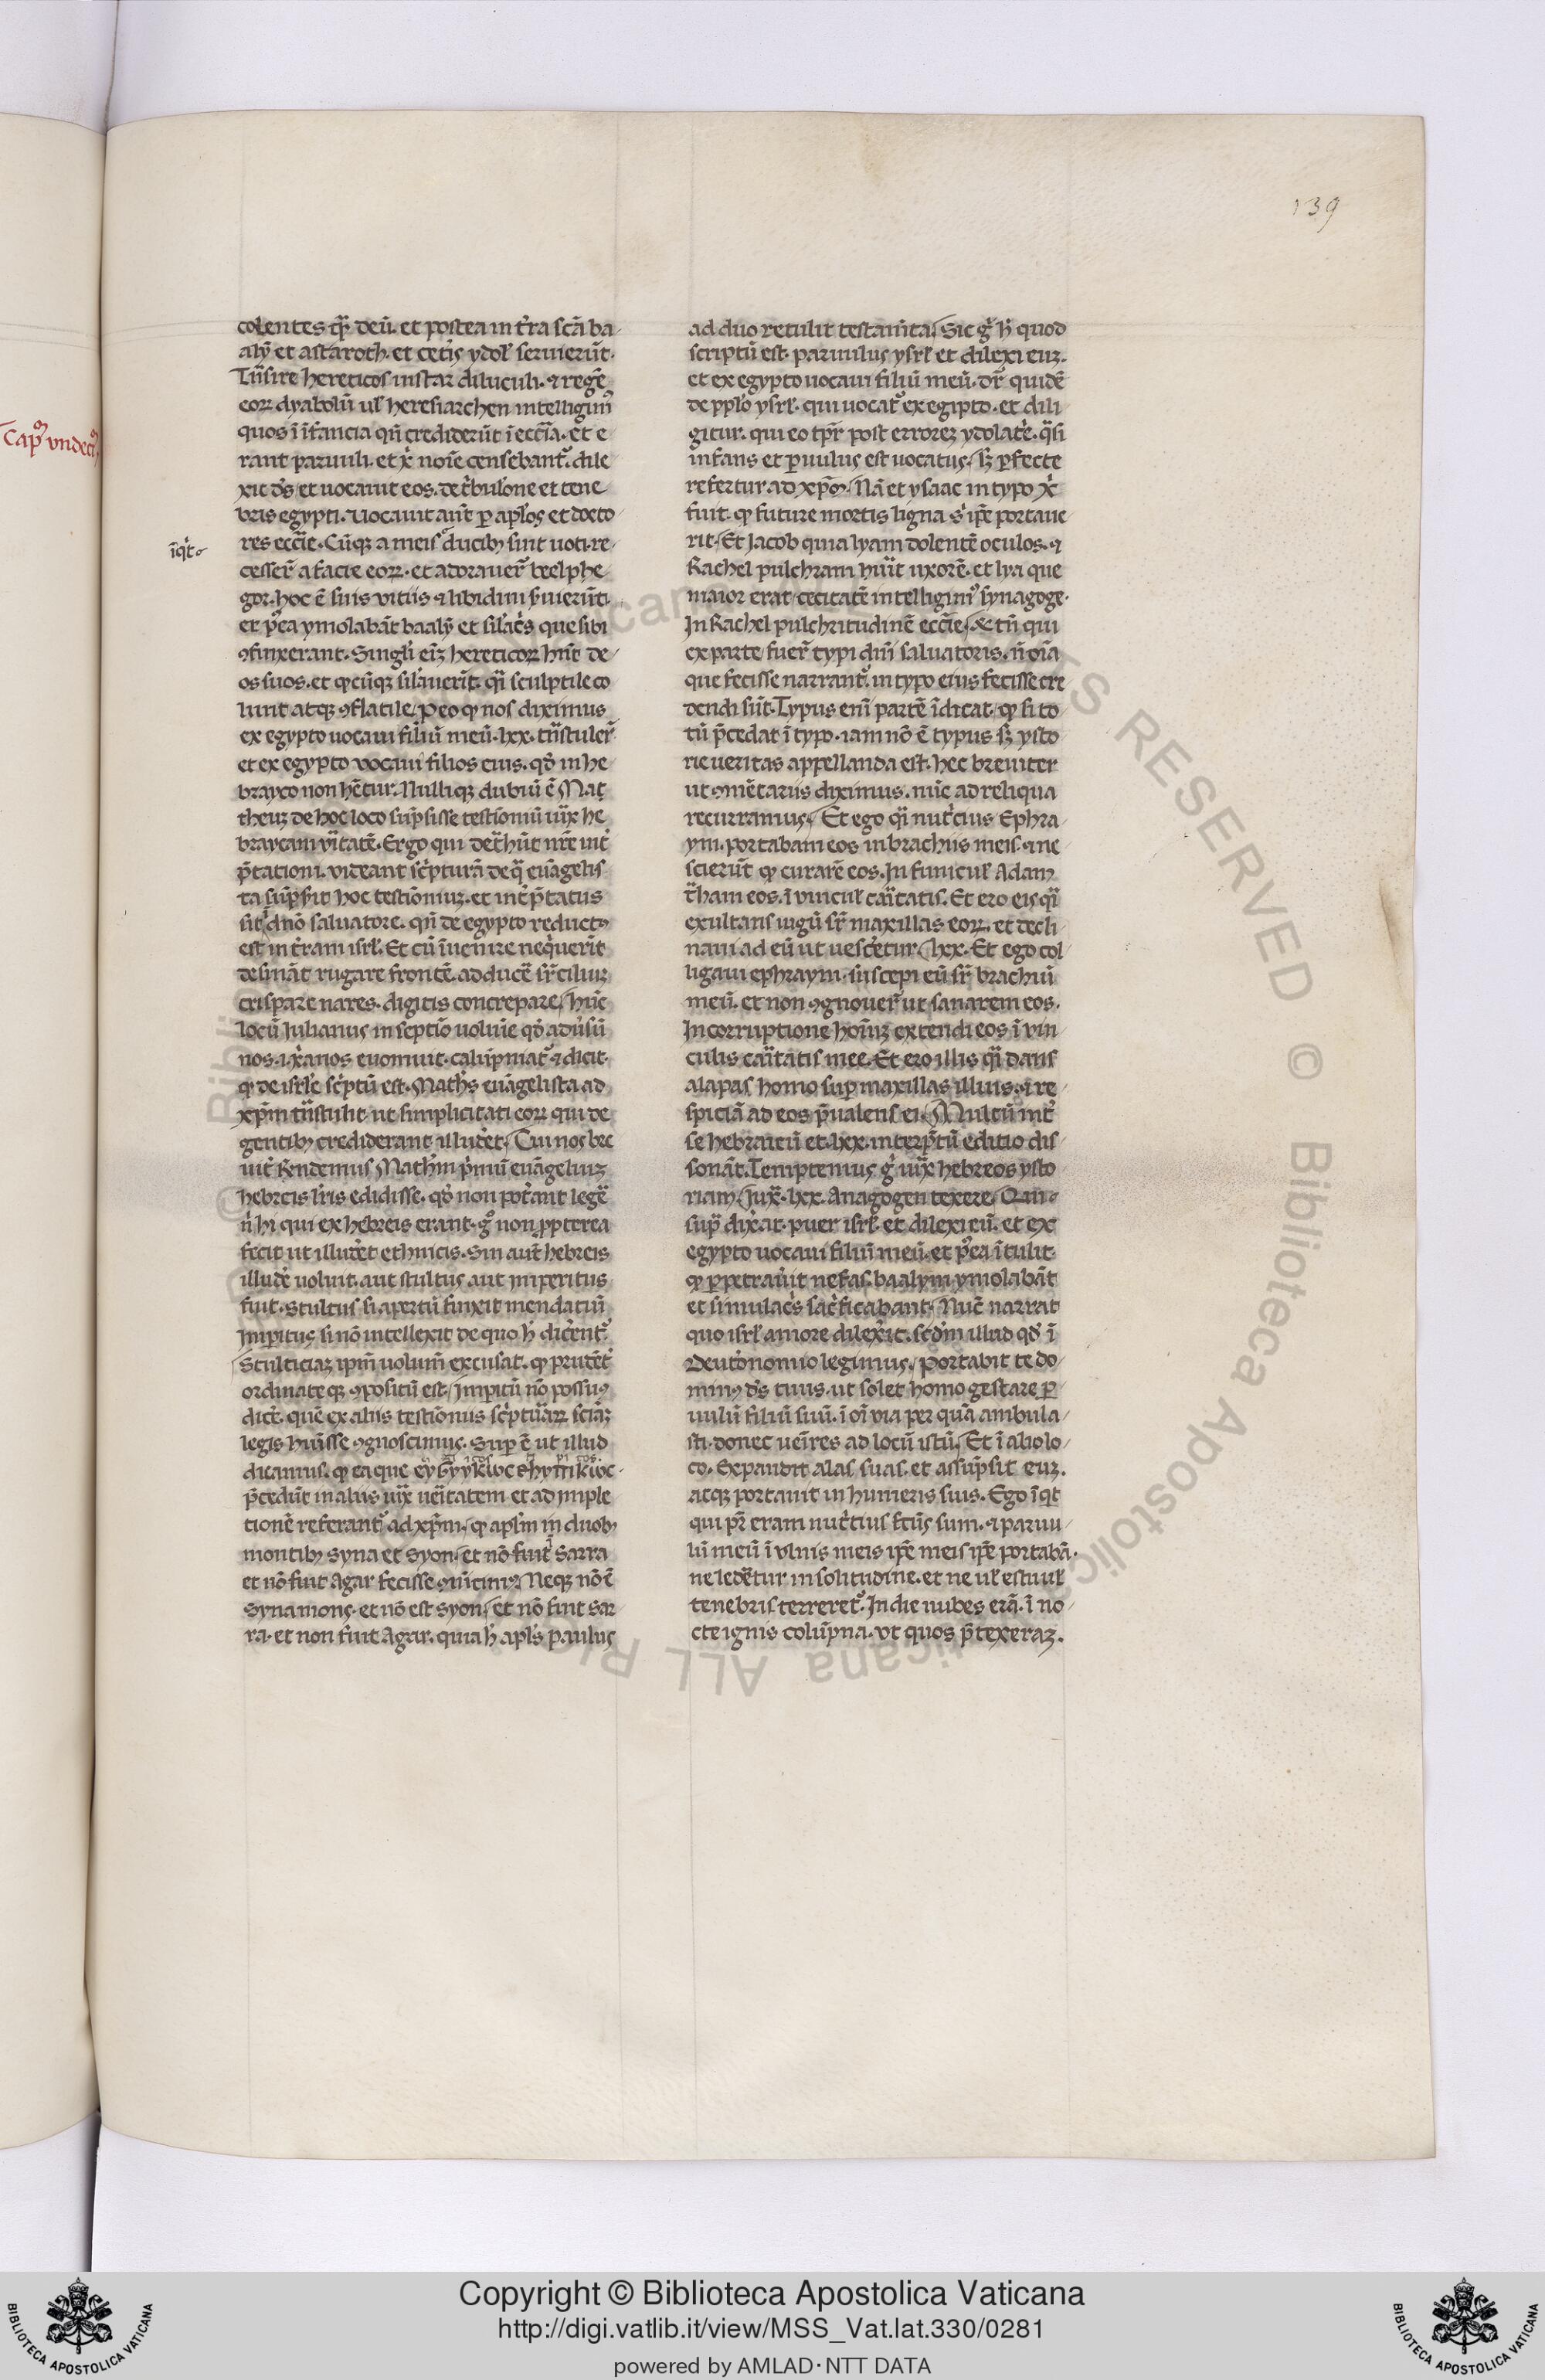 139
Cap̊ vndecı̊
colentes qͣ̄ deū. et postea in tr̄a scā ba
alȳ et astaroth. et cetis ydol seruierūt.
Trāsire hereticos instar diluculi. ⁊ regē
eoꝝ dyabolū ul heresiarchen intelligimꝰ
quos ī īfancia qn̄ crediderūt ī eccīa. et e
rant paruuli. et xͥ noīe censebantᷣ. dile
xit ds̄ et uocauit eos. de tͥbulōne et tene
bris egypti. Uocauit aūt ꝑ aplos et docto
īqͥt
res eccīe. Cūqꝫ a meis ducibꝫ sint uoti. re
cesser̄ a facie eoꝝ. et adorauer̄ beelphe
gor. hoc ē suis vitiis ⁊ libidini sͥuierūt.
et pͦea ymolabāt baalȳ et silacͥs que sibi
ꝯfinxerant. Singli eīꝫ hereticoꝝ hn̄t de
os suos. et qͦcūqꝫ silauerīt. qͣi sculptile co
lunt atqꝫ ꝯflatile. Peo qͦ nos diximus
ex egypto uocaui filiū meū. lxx. trāstuler̄
et ex egypto vocaui filios eius. qd̄ in he
brayco non hētur. Nulliqꝫ dubiū ē Mat
theuꝫ de hoc loco sūpsisse testioniū iux̄ he
braycam vͥtatē. Ergo qui det͛hūt nr̄e int͛
p̄tationi. videant scͥpturā de qͣ euāgelis
ta sūpsit hoc testīoniuꝫ. et int͛p̄tatus
sit dnō saluatore. qn̄ de egypto reductꝰ
est in t͛ram isrl. Et cū īuenire neqͥuerīt
desināt rugare frontē. adducē sr̄ciliuꝫ
crispare nares. digitis concrepare. hūc
locū Iulianus in septīo uolūie qd̄ adūsū
nos .i. xͥanos euomuit. calūpniatᷣ ⁊ dicit.
qͦ de isrle scͥptū est. Mathͥs euāgelista ad
xp̄m trāstulit ut simplicitati eoꝝ qui de
gentibꝫ crediderant illud͛et. Cui nos bre
uit͛ rn̄demus Mathm̄ pͥmū euāgeliuꝫ
hebreis lr̄is edidisse. qd̄ non pot͛ant legē
nͥ hi qui ex hebreis erant. gͦ non ꝓpterea
fecit ut illud͛et ethnicis. Sin aut̄ hebreis
illud͛e uoluit. aut stultus aut imperitus
fuit. Stultus si apertū finxit mendatiū
Imꝑitus si nō intellexit de quo hͥ dic͛entᷣ.
Stulticiaꝫ ipm̄ uolum̄ excusat. qͦ prudēt͛
ordinateqꝫ ꝯpositū est. Imꝑitū nō possumꝰ
dic͛e. quē ex aliis testīoniis scͥptuͣꝝ sciāꝫ
legis huisse ꝯgnoscimus. Suꝑ ē ut illud
dicamus. qͦ ea que
p̄cedūt in aliis iux̄ ueͥtatem et ad imple
tionē referantᷣ ad xp̄m. qͦ aplm̄ in duobꝫ
montibꝫ syna et syon. et nō fuit Sarra
et nō fuit Agar fecisse
Syna mons. et nō est syon. et nō fuit Sar
ra. et non fuit Agar. quia hͥ apls paulus
ad duo retulit testam̄ta. Sic gͦ hͥ quod
scriptū est. paruulus ysrl et dilexi euꝫ.
et ex egypto uocaui filiū meū. dr̄ quidē
de pplo ysrl. qui uocatᷣ ex egipto. et dili
gitur. qui eo tpr̄ post erroreꝫ ydolat͛e. qͣsi
infans et ꝑuulus est uocatus. sꝫ ꝑfecte
refertur ad xpm̄. Nā et ysaac in typo xͥ
fuit. qͦ future mortis ligna sͥ ipē portaue
rit. Et Iacob quia lyam dolentē oculos. ⁊
Rachel pulchram huīt uxorē. et lya que
maior erat cecitatē intelligimꝰ synagoge.
In Rachel pulchritudinē eccīe. & tn̄ qui
ex parte fuer̄ typi dnī saluatoris. n̄ oīa
que fecisse narrantᷣ. in typo eius fecisse cre
dendi sūt. Typus enī partē īdicat. qͦ si to
tū p̄cedat ī typo. iam nō ē typus sꝫ ysto
rie ueritas appellanda est. hec breuiter
ut ꝯmētariis diximus. nūc ad reliqua
recurramus. Et ego qͣi nutͥcius Ephra
ym. portabam eos in brachiis meis. ⁊ ne
scierūt qͦ curarē eos. In funicul Adam
t͛ham eos. ī vincul caͥtatis. Et ero eis qͣi
exultans iugū sr̄ maxillas eoꝝ. et decli
naui ad eū ut uesc͛etur. lxx. Et ego col
ligaui ephraym. suscepi eū sr̄ brachiū
meū. et non ꝯgnouer̄ ut sanarem eos.
In corruptione hoīuꝫ extendi eos ī vin
culis caͥtatis mee. Et ero illis qͣi dans
alapas homo suꝑ maxillas illius. ⁊ re
spiciā ad eos p̄ualens ei. Multū int͛
se hebraicū et .lxx. interp̄tū editio dis
sonāt. Temptemus gͦ iux̄ hebreos ysto
riam. Iux̄ .lxx. Anagogen texere. Qui
supͣ dix͛at. puer isrl. et dilexi eū. et ex
egypto uocaui filiū meū. et pͦea ītulit
qͦ ꝑpetraūit nefas. baalym ymolabāt
et simulacͥs sacͥficabant. Nūc narrat
quo isrl amore dilex͛it. scdm̄ illud qd̄ ī
Deut͛onomio legimus. Portabit te do
minꝰ ds̄ tuus. ut solet homo gestare ꝑ
uulū filiū suū. ī oī via per quā ambula
sti. donec ueīres ad locū istū. Et ī alio lo
co. Expandit alas suas. et assūpsit euꝫ.
atqꝫ portauit in humeris suis. Ego īqͥt
qui pr̄ eram nutͥcius fctūs sum. ⁊ paruu
lū meū ī vlnis meis ipē meis ipē portabā.
ne ledētur in solitudine. et ne ul estu ul
tenebris terreretᷣ. In die nubes erā. ī no
cte ignis colūpna. vt quos p̄texeraꝫ.
Copyright © Biblioteca Apostolica Vaticana
http://digi.vatlib.it/view/MSS_Vat.lat.330/0281
powered by AMLAD·NTT DATA
BIBLIOTECA APOSTOLICA VATICANA
BIBLIOTECA APOSTOLICA VATICANA